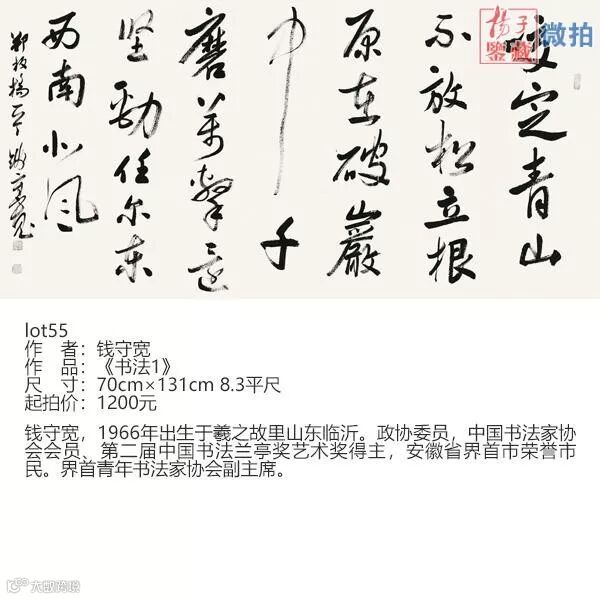 揚子
鑒藏
微拍
咬定青山
不放松立根
原在破巖
中千
磨萬擊還
坚勁任尔东
西南北风
郑板桥
lot55
作 者：钱守宽
作 品：《书法1》
尺 寸：70cm×131cm 8.3平尺
起拍价：1200元
钱守宽，1966年出生于羲之故里山东临沂。政协委员，中国书法家协
会会员、第二届中国书法兰亭奖艺术奖得主，安徽省界首市荣誉市
民。界首青年书法家协会副主席。
大数跨境